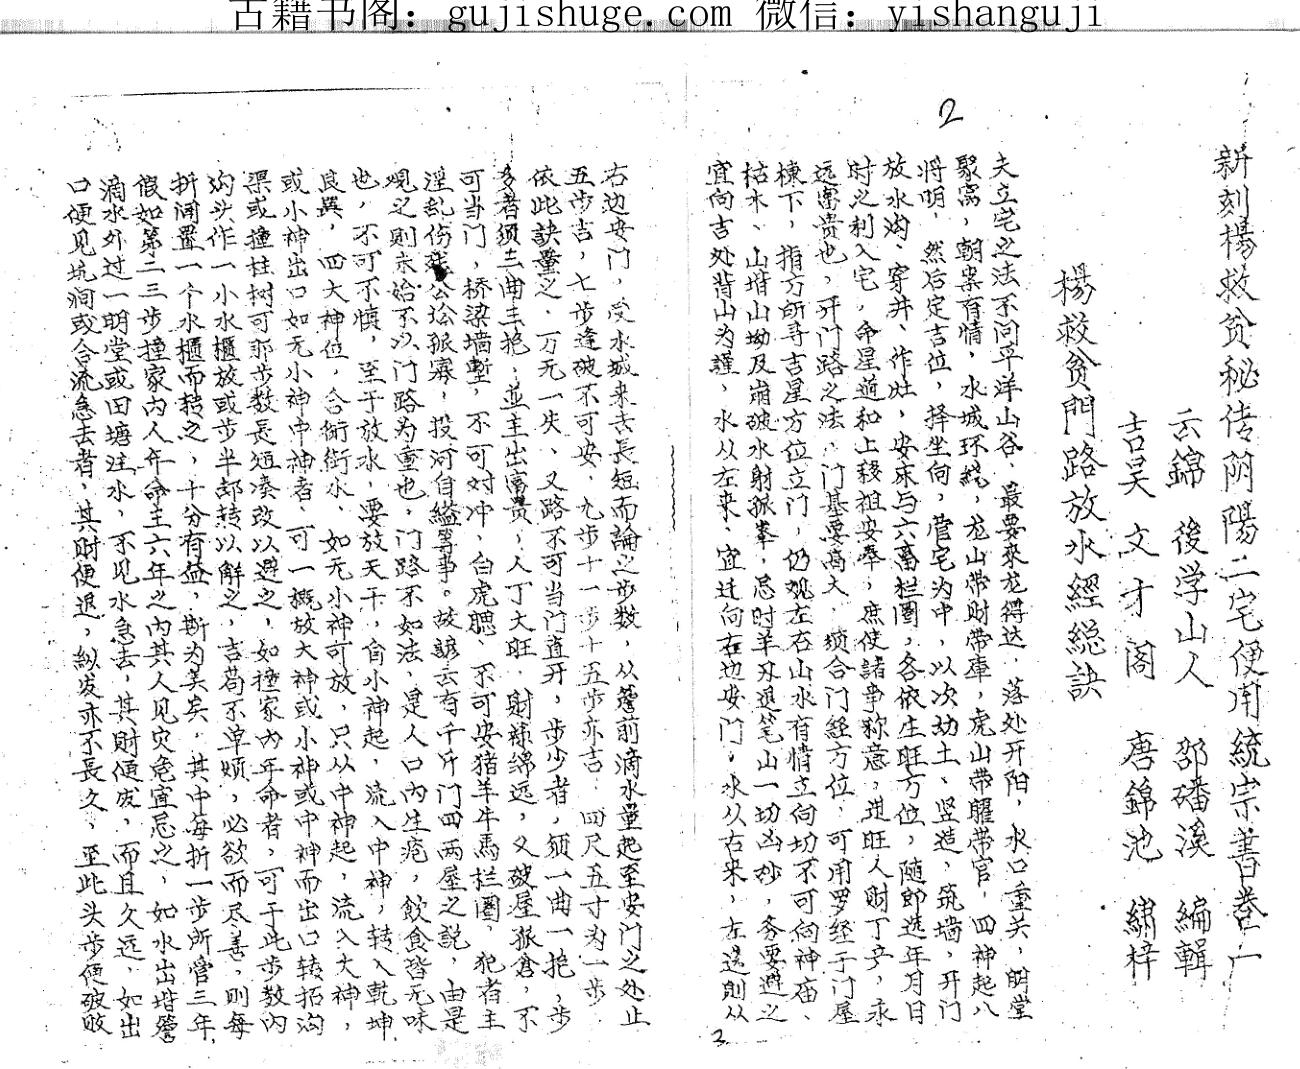 古籍书阁：gujishuge.com 微信：yishanguji
2
新刻楊救贫秘传阴陽二宅便用統宗書卷一
云錦 後学山人 邵磻溪 編輯
吉吴 文才阁 唐錦池 繡梓
楊救贫門路放水經総訣
夫立宅之法不问平洋山谷，最要來龙得达，落处开阳，水口重关，明堂
聚窩，朝案有情，水城环繞，龙山带财带庫，虎山带曜带官，四神起八
将明，然后定吉位，择坐向，菅宅为中，以次动土、竖造，筑墙，开门
放水沟、穿井、作灶，安床与六畜栏圈，各依生旺方位，随即选年月日
时之利入宅，命星道和上移祖安奉，庶使諸事称意，进旺人财丁产，永
远富贵也，开门路之法，门基要高大，须合门经方位，可用罗经于门屋
棟下，指方研寻吉星方位立门，仍观左右山水有情立向切不可向神庙、
枯木、山堦山坳及崩破水射孤峯，忌时羊刃退笔山一切凶砂，务要避之
宜向吉处背山为謹，水从左来，宜迁向右边安门，水从右来，左边則从
3
右边安门，受水城来去長短而論之步数，从簷前滴水量起至安门之处止
五步吉，七步逢破不可安，九步十一步十五步亦吉，四尺五寸为一步
依此訣量之，万无一失、又路不可当门直开，步少者，须一曲一抱，步
多者须三曲三抱，並主出富贵，人丁大旺，財禄绵远，又破屋孤倉，不
可当门，桥梁墙塹，不可对冲，白虎聴，不可安猪羊牛馬栏圈，犯者主
淫乱伤残公讼孤寡，投河自縊等事。故諺云有千斤门四两屋之説，由是
观之则未始不以门路为重也，门路不如法，是人口內生疮，飲食皆无味
也，不可不慎，至于放水，要放天干，自小神起，流入中神，转入乾坤
艮巽，四大神位，合衛衔水、如无小神可放，只从中神起，流入大神，
或小神出口如无小神中神者、可一概放大神或小神或中神而出口转拓沟
渠或撞柱树可那步数長短凑改以避之，如撞家內年命者，可于此步数内
沟头作一小水櫃放或步半却转以解之，吉苟不单煩，必欲而尽善，则每
折间置一个水櫃而转之，十分有益，斯为美矣，其中每折一步所管三年
假如第二三步撞家内人年命主六年之內其人见灾危宜忌之，如水出堦簷
滴水外过一明堂或田塘注水，不见水急去，其財便发，而且久远，如出
口便见坑涧或合流急去者，其財便退，纵发亦不長久，至此头步便破敗